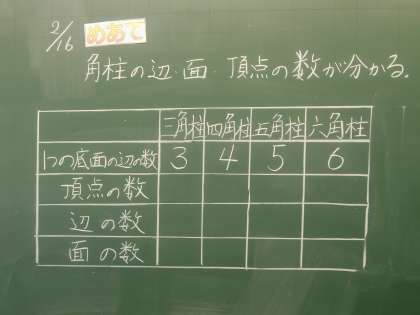 2/16 めあて
角柱の辺・面・頂点の数が分かる。
三角柱 四角柱 五角柱 六角柱
1つの底面の辺の数 3 4 5 6
頂点の数
辺の数
面の数